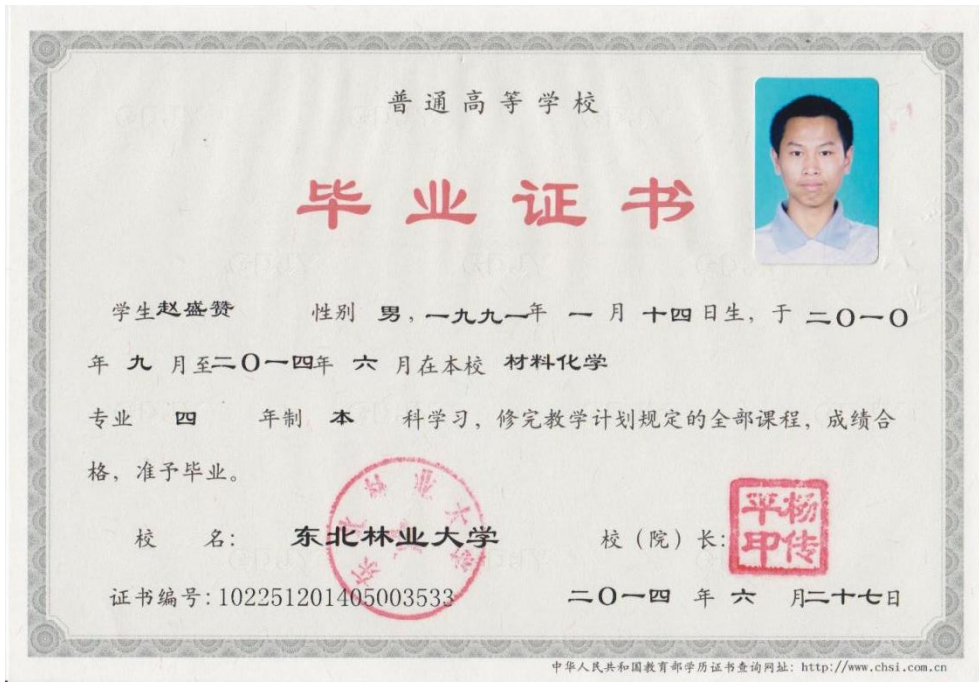 普通高等学校
毕业证书
学生赵盛赞 性别 男，一九九一年 一 月 十四日生，于 二〇一〇
年 九 月至二〇一四年 六 月在本校 材料化学
专业 四 年制 本 科学习，修完教学计划规定的全部课程，成绩合
格，准予毕业。
校 名： 东北林业大学 校（院）长：
东北林业大学
杨传平印
证书编号：102251201405003533 二〇一四 年 六 月二十七日
中华人民共和国教育部学历证书查询网址：http://www.chsi.com.cn